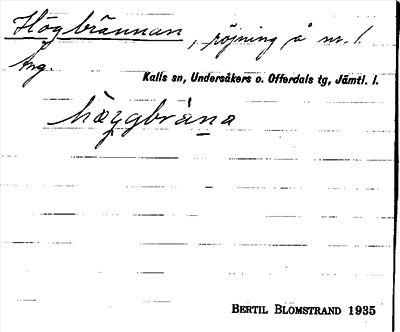 Högbrännan, röjning å nr. 1.
Ång.
Kalls sn, Undersåkers o. Offerdals tg, Jämtl. l.
hæɡgbràna
BERTIL BLOMSTRAND 1935